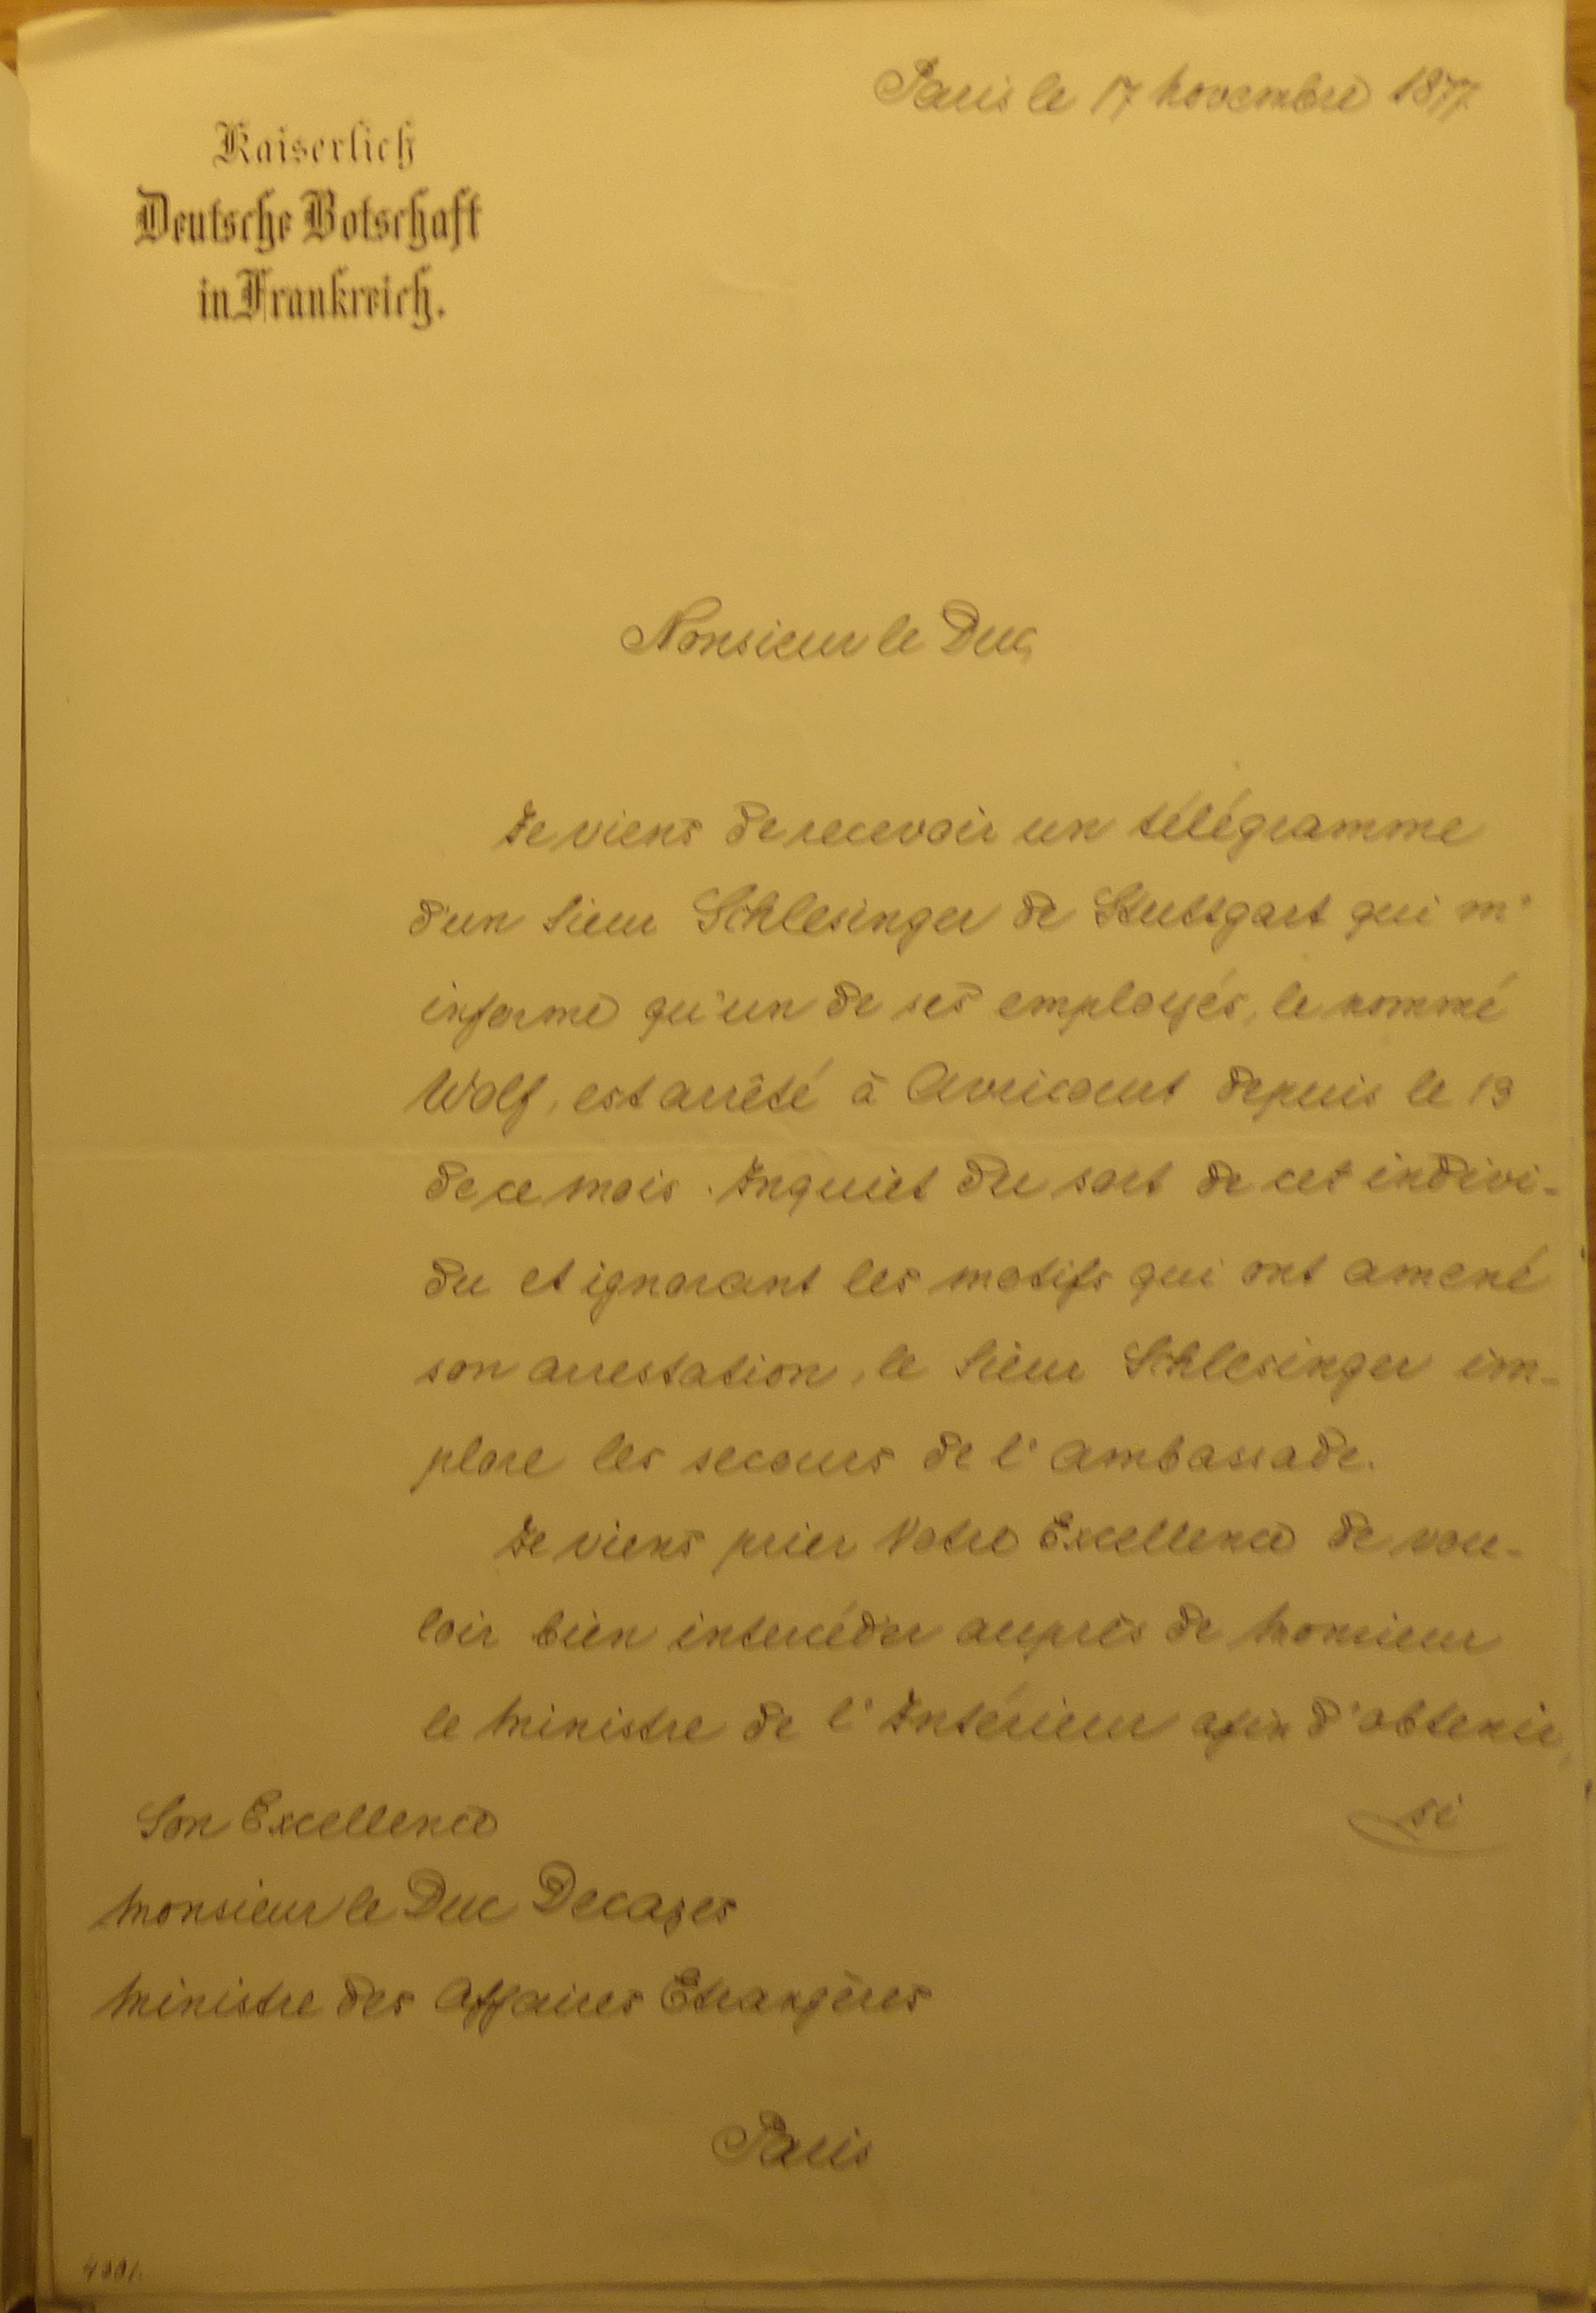 Paris le 17 novembre 1877
Kaiserlich
Deutsche Botschaft
in Frankreich.
Monsieur le Duc,
Je viens de recevoir un télégramme
d'un Sieur Schlesinger de Stuttgart qui m'
informe qu'un de ses employés, le nommé
Wolf, est arrêté à Avricourt depuis le 13
de ce mois. Inquiet du sort de cet indivi-
du et ignorant les motifs qui ont amené
son arrestation, le Sieur Schlesinger im-
plore les secours de l'ambassade.
Je viens prier Votre Excellence de vou-
loir bien intercéder auprès de Monsieur
le Ministre de l'Intérieur afin d'obtenir,
si
Son Excellence
Monsieur le Duc Decazes
Ministre des Affaires Etrangères
Paris